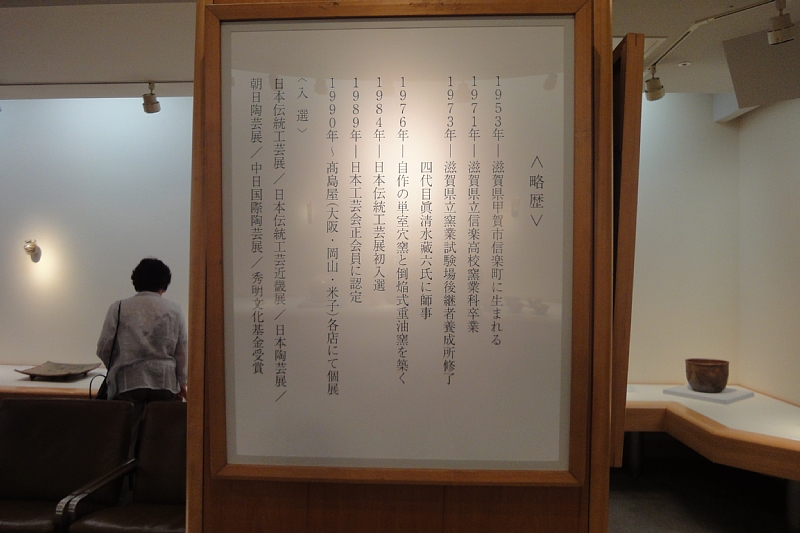 〈略歴〉
1953年―滋賀県甲賀市信楽町に生まれる
1971年―滋賀県立信楽高校窯業科卒業
1973年―滋賀県立窯業試験場後継者養成所修了
四代目眞清水藏六氏に師事
1976年―自作の単室穴窯と倒焔式重油窯を築く
1984年―日本伝統工芸展初入選
1989年―日本工芸会正会員に認定
1990年～髙島屋(大阪・岡山・米子)各店にて個展
〈入選〉
日本伝統工芸展／日本伝統工芸近畿展／日本陶芸展／
朝日陶芸展／中日国際陶芸展／秀明文化基金受賞